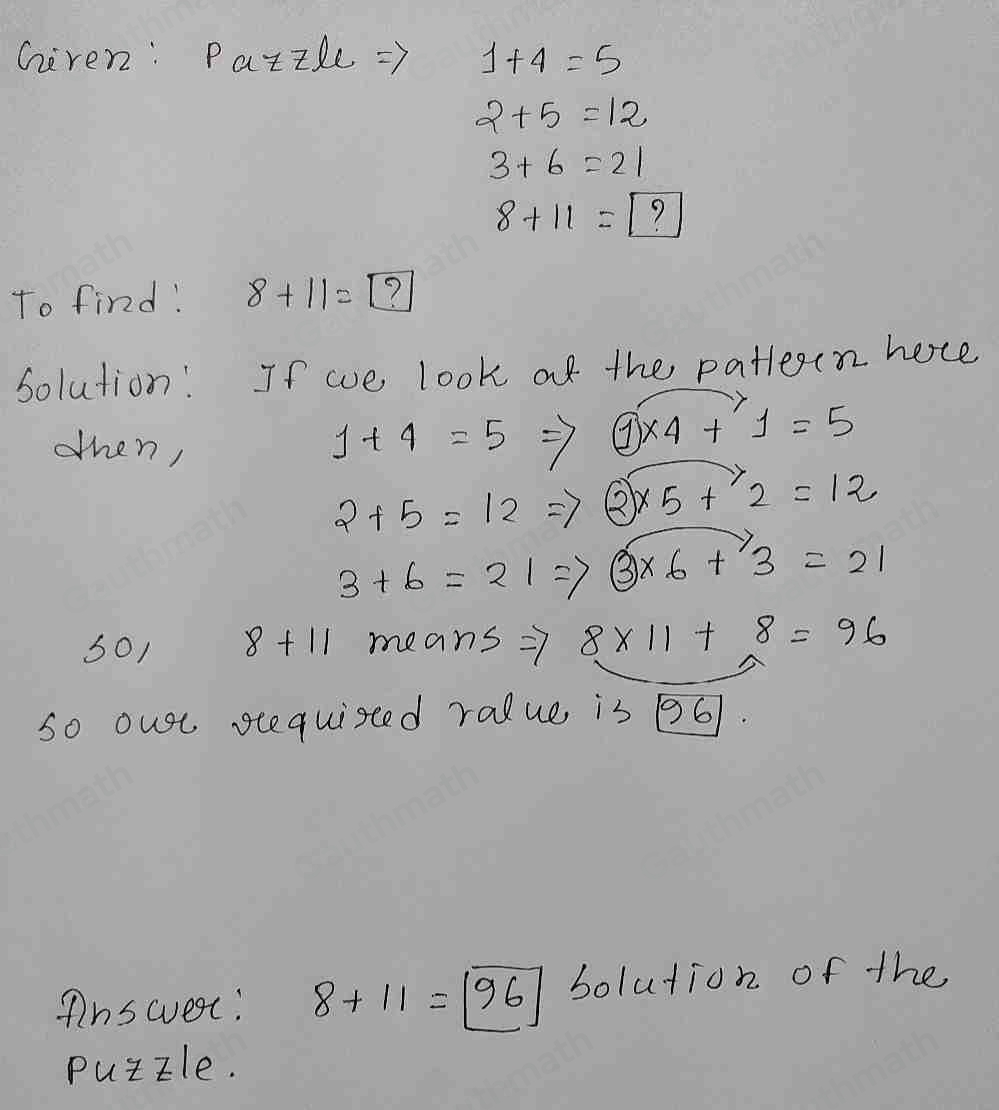 Given: Pazzle => 1+4 = 5
2+5 = 12
3+6 = 21
8+11 = ?
To find: 8+11= ?
Solution: If we look at the pattern here
then, 1+4 = 5 => 1×4 + 1 = 5
2+5 = 12 => 2×5 + 2 = 12
3+6 = 21 => 3×6 + 3 = 21
so, 8+11 means => 8×11 + 8 = 96
so our required value is 96.
Answer: 8+11 = 96 solution of the
puzzle.